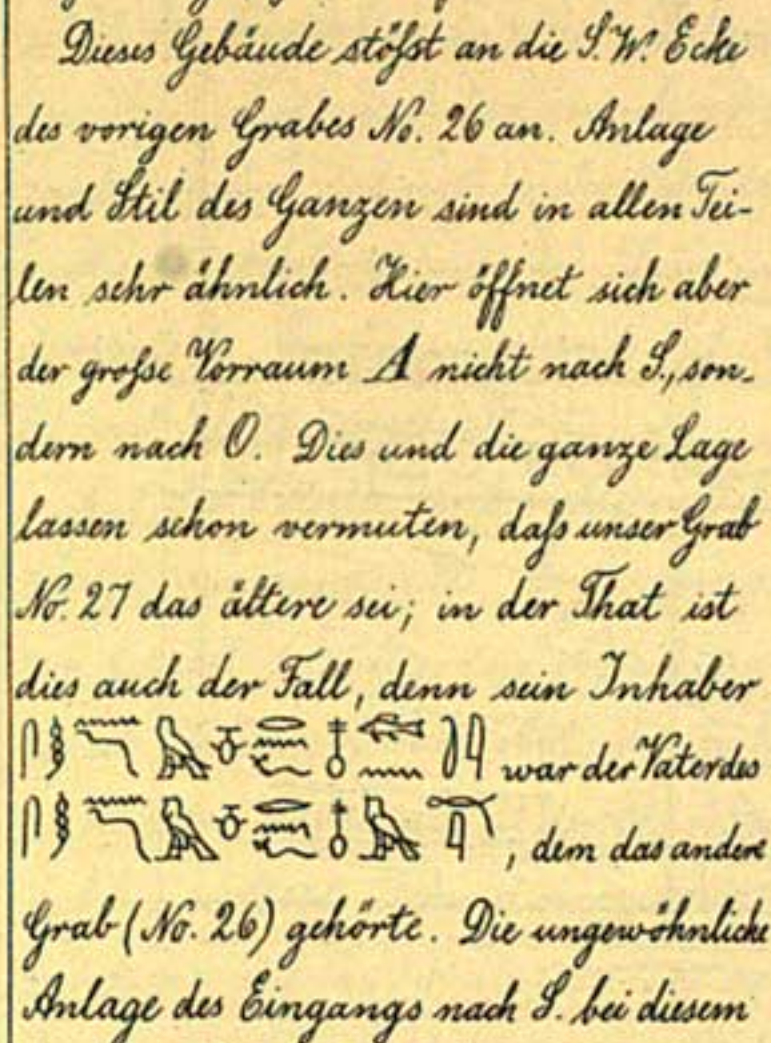 Dieses Gebäude stöſst an die S.W. Ecke
des vorigen Grabes No. 26 an. Anlage
und Stil des Ganzen sind in allen Tei-
len sehr ähnlich. Hier öffnet sich aber
der groſse Vorraum A nicht nach S., son-
dern nach O. Dies und die ganze Lage
lassen schon vermuten, daſs unser Grab
No. 27 das ältere sei; in der That ist
dies auch der Fall, denn sein Inhaber
war der Vater des
, dem das andere
Grab (No. 26) gehörte. Die ungewöhnliche
Anlage des Eingangs nach S. bei diesem